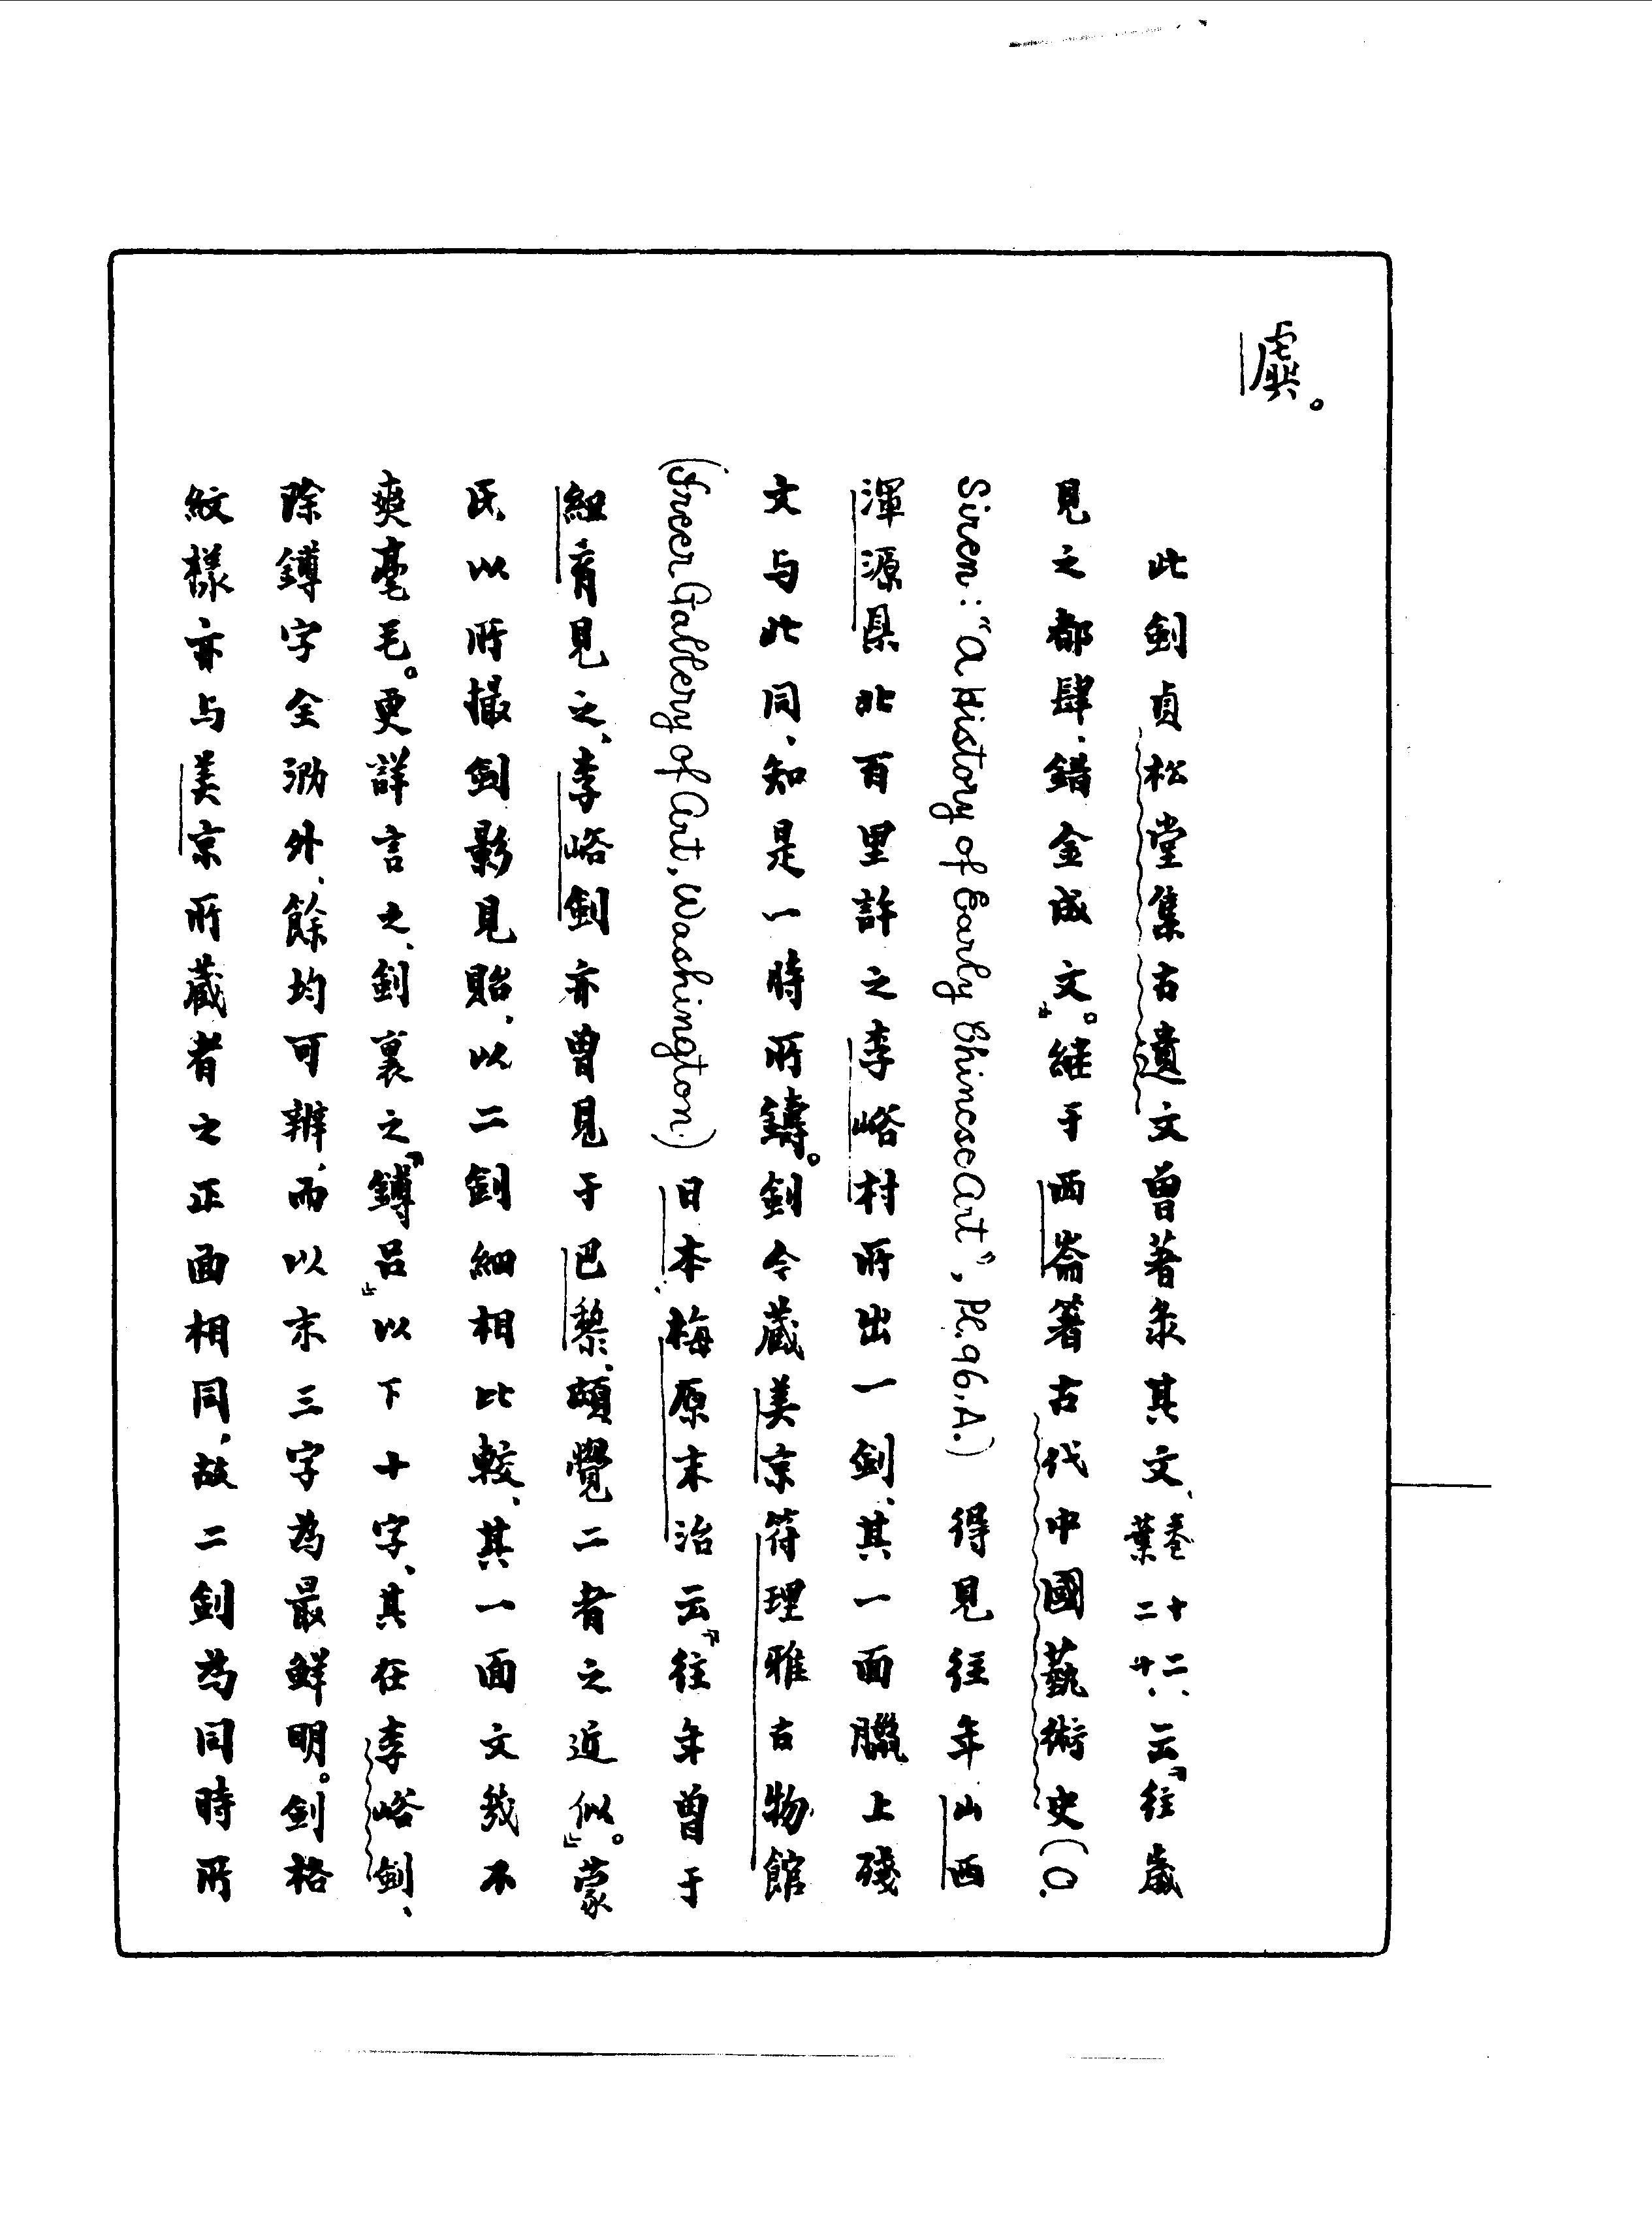 虞。
此劍貞松堂集古遺文曾著录其文、卷十二葉二十八、云『往歲
見之都肆、錯金成文。』继于西崙著古代中國藝術史(O.
Siren: "A History of Early Chinese Art", Pl. 96, A.) 得見往年山西
渾源県北百里許之李峪村所出一劍、其一面臘上殘
文与此同、知是一時所鑄。劍今蔵美京符理雅古物館
(Freer Gallery of Art, Washington.)日本梅原末治云『往年曾于
紐育見之、李峪劍亦曾見于巴黎、頗覺二者之近似。』蒙
氏以所撮劍影見貽、以二劍細相比較、其一面文幾不
爽毫毛。更詳言之、劍裏之『鎛呂』以下十字、其在李峪劍、
除鎛字全泐外、餘均可辨、而以末三字為最鮮明。劍格
紋樣亦与美京所蔵者之正面相同、故二劍為同時所